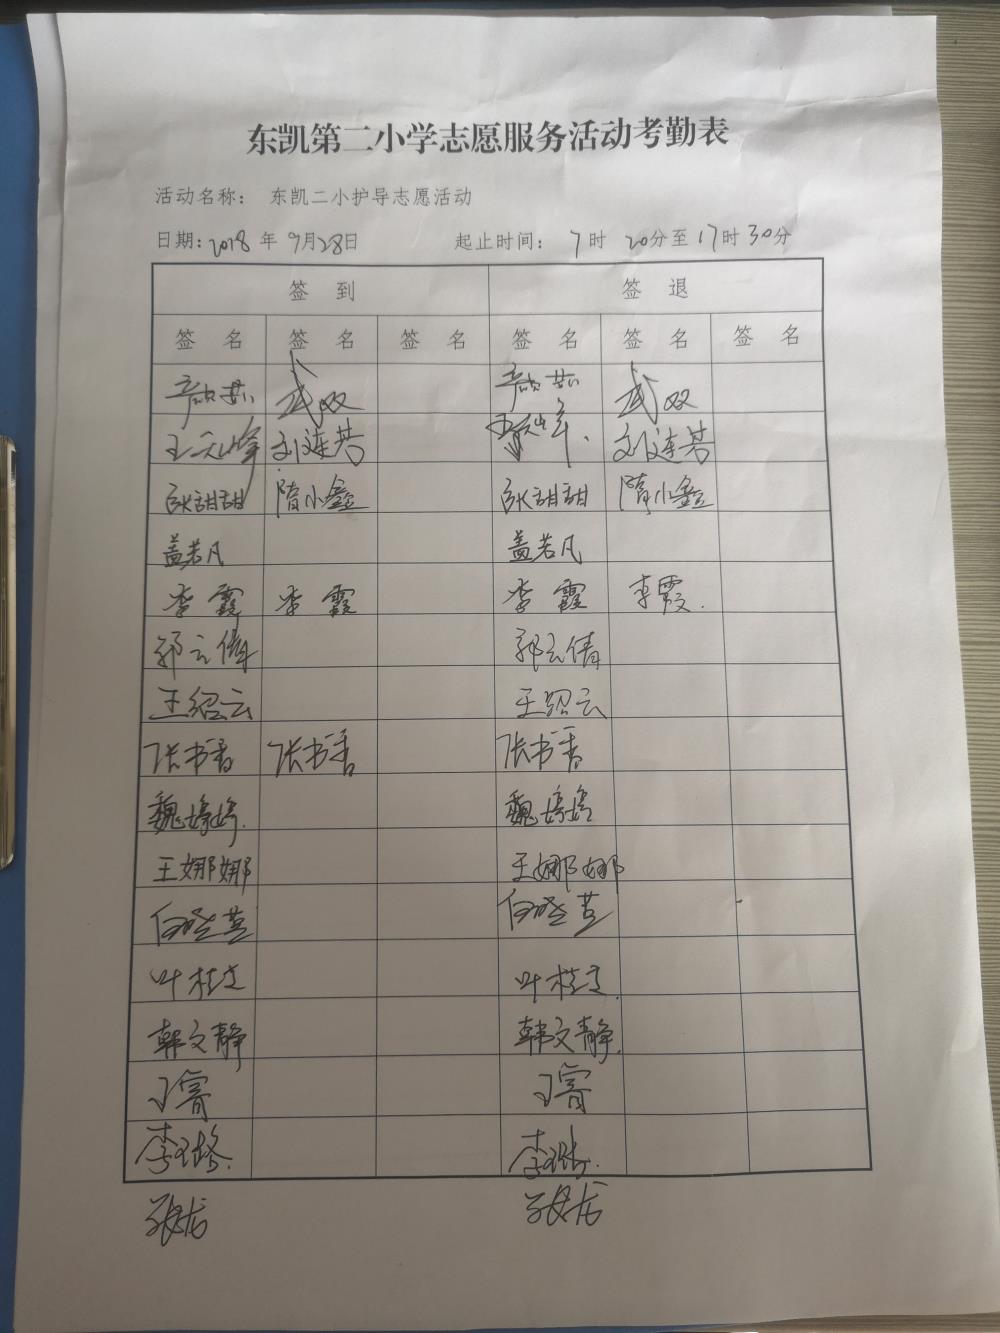 东凯第二小学志愿服务活动考勤表
活动名称： 东凯二小护导志愿活动
日期：2018 年 9月28日 起止时间： 7时 20分至17时30分
签 到 签 退
签 名 签 名 签 名 签 名 签 名 签 名
武双 武双
王天峰 刘连芸 刘连芸
张甜甜 隋小鑫 张甜甜 隋小鑫
盖若凡 盖若凡
李霞 李霞 李霞 李霞.
郭云倩 郭云倩
王绍云 王绍云
张书香 张书香 张书香
魏婷婷. 魏婷婷
王娜娜 王娜娜
叶桂文 叶桂文.
韩文静 韩文静.
王宵 王宵
李璐. 李璐.